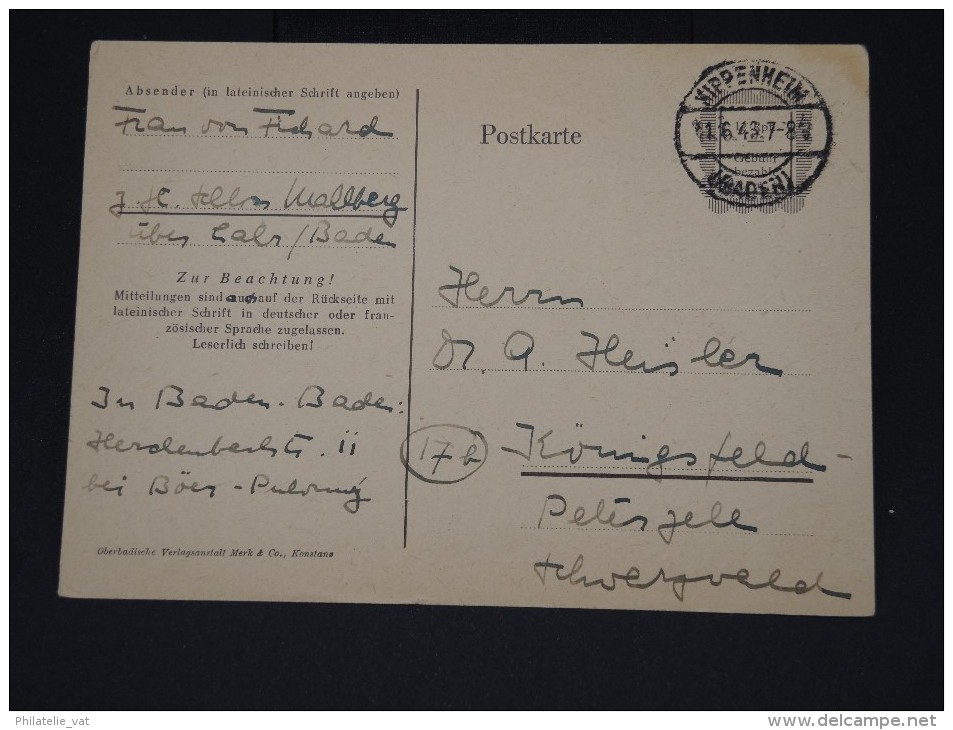 Absender (in lateinischer Schrift angeben)
Frau von Fichard
z. Zt. Schloss Mahlberg
über Lahr/Baden
Zur Beachtung!
Mitteilungen sind auch auf der Rückseite mit
lateinischer Schrift in deutscher oder fran-
zösischer Sprache zugelassen.
Leserlich schreiben!
In Baden-Baden:
bei
Oberbadische Verlagsanstalt Merk & Co., Konstanz
Postkarte
KIPPENHEIM
(BADEN)
Gebühr
bezahlt
Herrn
Dr. A. Heisler
17b
Königsfeld-
Peterzell
Schwarzwald
Philatelie_vat
www.delcampe.net